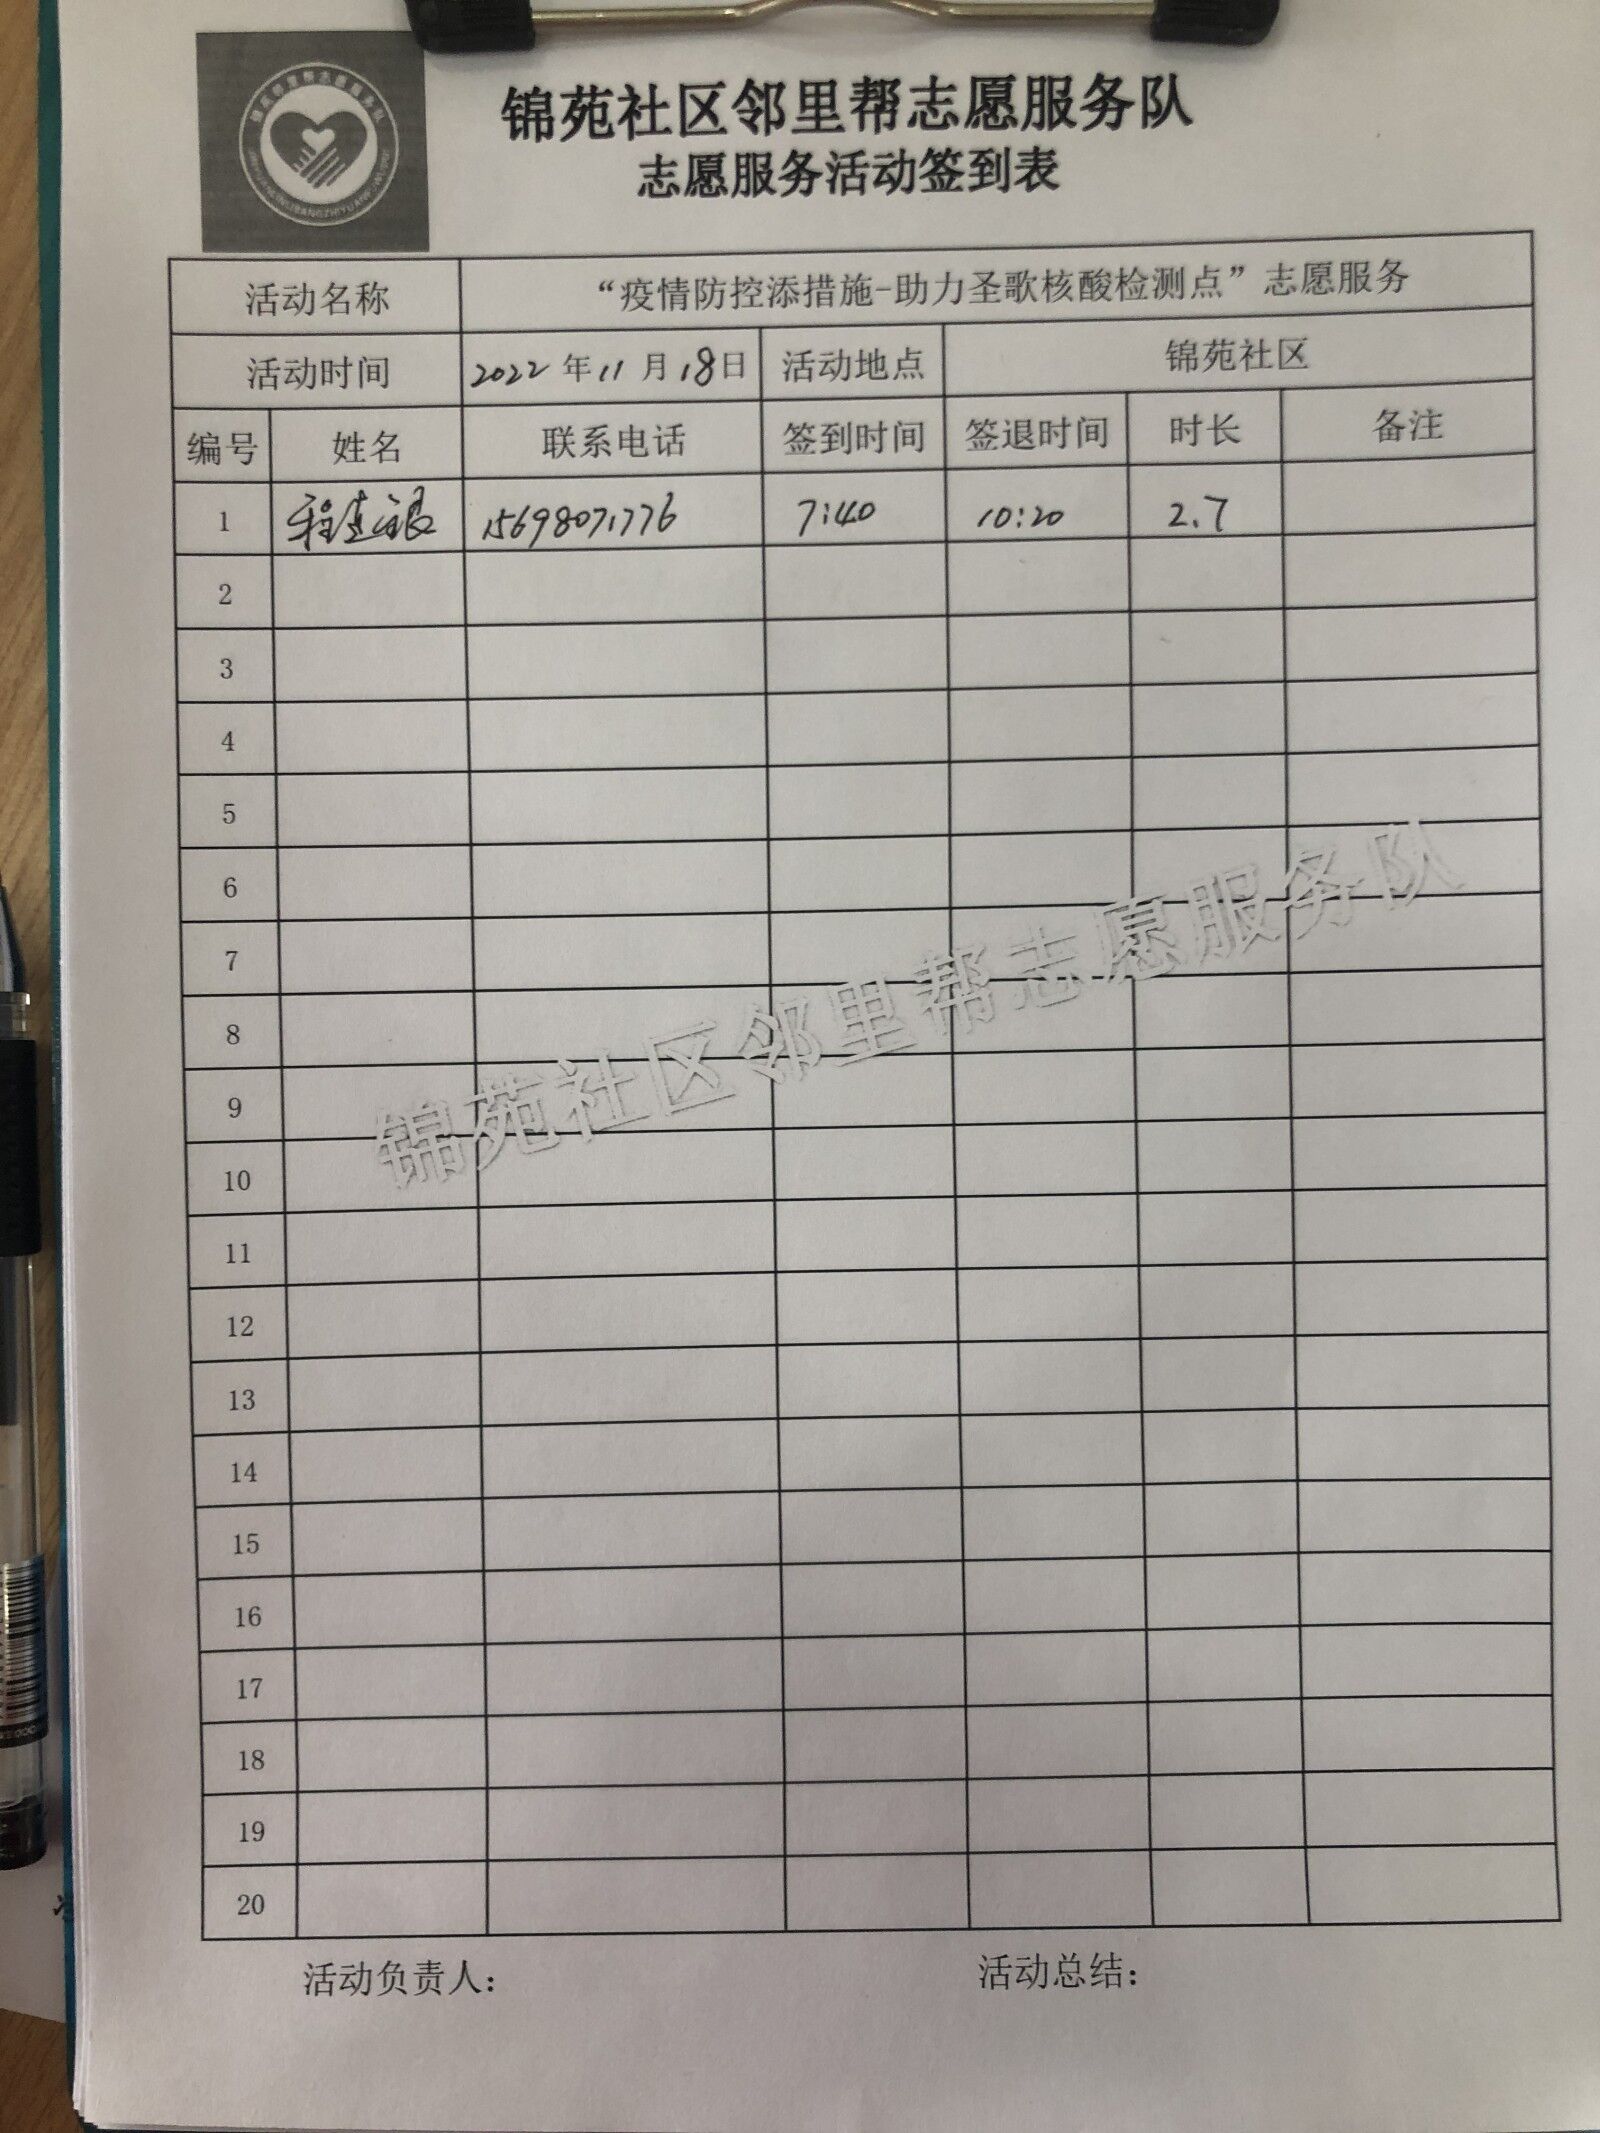 锦苑社区邻里帮志愿服务队
志愿服务活动签到表
活动名称 “疫情防控添措施-助力圣歌核酸检测点”志愿服务
活动时间 2022年11月18日 活动地点 锦苑社区
编号 姓名 联系电话 签到时间 签退时间 时长 备注
1 15698071776 7:40 10:20 2.7
2
3
4
5
6
7
8
9
10
11
12
13
14
15
16
17
18
19
20
锦苑社区邻里帮志愿服务队
活动负责人： 活动总结：